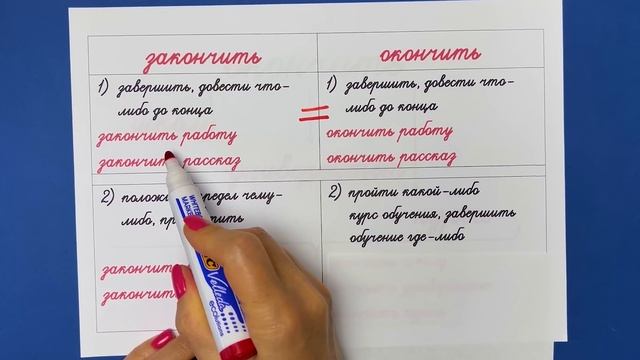 закончить
окончить
1) завершить, довести что-
либо до конца
закончить работу
закончить рассказ
=
1) завершить, довести что-
либо до конца
окончить работу
окончить рассказ
2) предел чему-
либо,
закончить
закончить
2) пройти какой-либо
курс обучения, завершить
обучение где-либо
Velleda
ecolutions